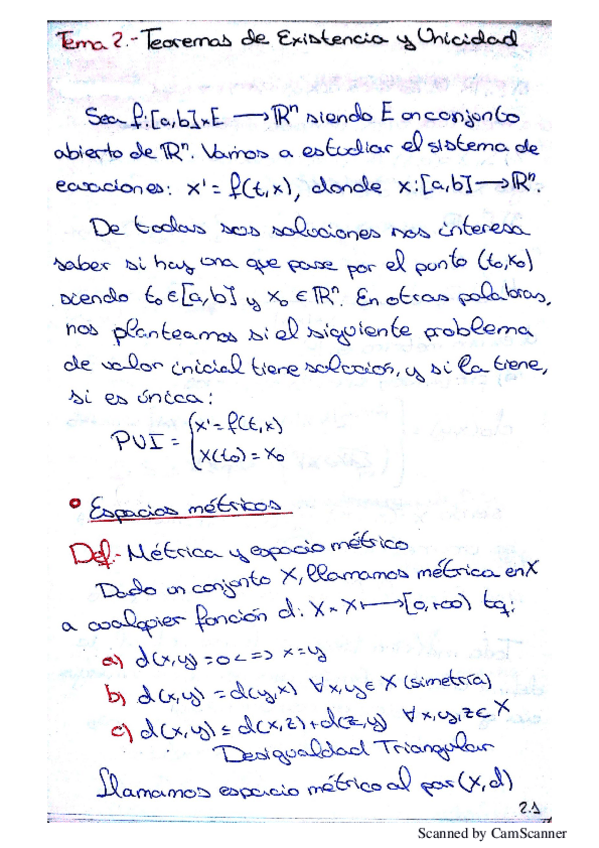 Tema 2.- Teoremas de Existencia y Unicidad
Sea f:[a,b]×E ⟶ ℝⁿ siendo E un conjunto
abierto de ℝⁿ. Vamos a estudiar el sistema de
ecuaciones: x' = f(t,x), donde x:[a,b]⟶ℝⁿ.
De todas sus soluciones nos interesa
saber si hay una que pase por el punto (t₀,x₀)
siendo t₀∈[a,b] y x₀ ∈ ℝⁿ. En otras palabras,
nos planteamos si el siguiente problema
de valor inicial tiene solución, y si la tiene,
si es única:
PVI = { x' = f(t,x)
x(t₀) = x₀
• Espacios métricos
Def.- Métrica y espacio métrico
Dado un conjunto X, llamamos métrica en X
a cualquier función d: X×X ⟼ [0,+∞) tq:
a) d(x,y) = 0 <=> x=y
b) d(x,y) = d(y,x) ∀x,y∈X (simetría)
c) d(x,y) ≤ d(x,z)+d(z,y) ∀x,y,z∈X
Desigualdad Triangular
Llamamos espacio métrico al par (X,d)
2.1
Scanned by CamScanner